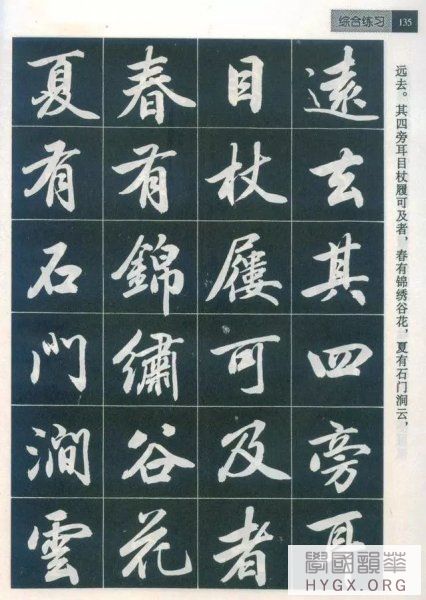 综合练习 135
远去。其四旁耳目杖履可及者，春有锦绣谷花，夏有石门洞云，
遠去其四旁耳
目杖屨可及者
春有錦繡谷花
夏有石門澗雲
學國韻華
HYGX.ORG